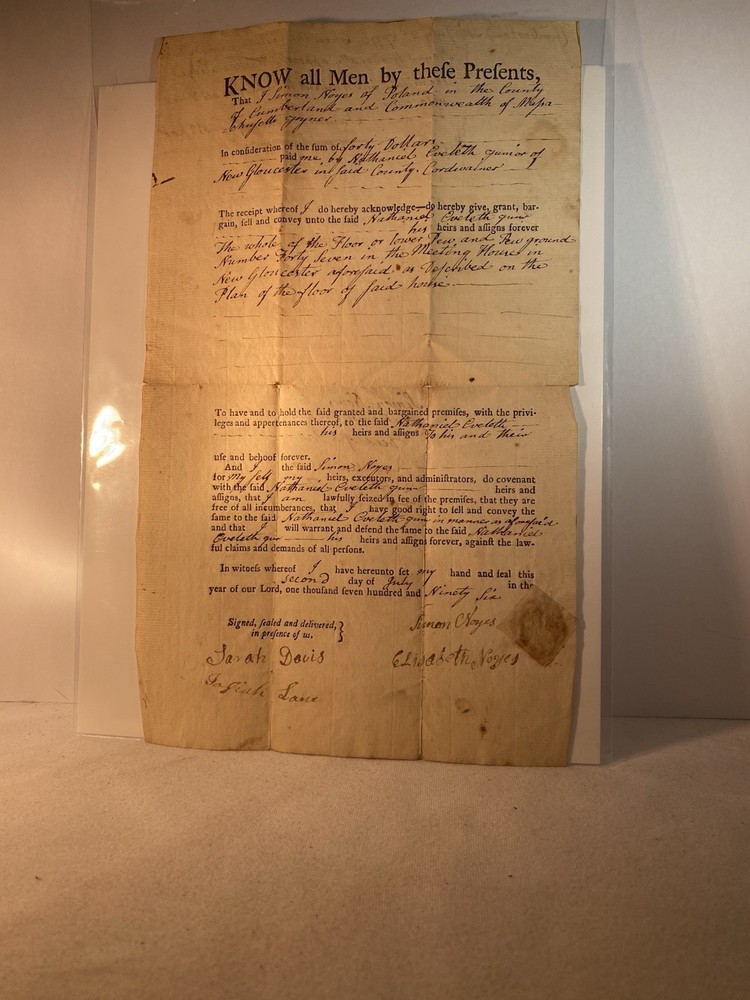 KNOW all Men by theſe Preſents,
That I Simon Noyes of Poland in the County
of Cumberland and Commonwealth of Maſſa-
chuſetts Joyner
In conſideration of the ſum of forty Dollars
paid me, by Nathaniel Eveleth Junior of
New Gloucester in ſaid County, Cordwainer
The receipt whereof I do hereby acknowledge do hereby give, grant, bar-
gain, ſell and convey unto the ſaid Nathaniel Eveleth Junr
his heirs and aſſigns forever
The whole of the Floor or lower Pew and Pew ground
Number Forty Seven in the Meeting House in
New Gloucester aforeſaid as Deſcribed on the
Plan of the floor of ſaid house
To have and to hold the ſaid granted and bargained premiſes, with the privi-
leges and appertenances thereof, to the ſaid Nathaniel Eveleth
his heirs and aſſigns to his and their
uſe and behoof forever.
And I the ſaid Simon Noyes
for my ſelf my heirs, executors, and adminiſtrators, do covenant
with the ſaid Nathaniel Eveleth Junr heirs and
aſſigns, that I am lawfully ſeized in fee of the premiſes, that they are
free of all incumberances, that I have good right to ſell and convey the
ſame to the ſaid Nathaniel Eveleth Junr in manner as aforeſaid
and that I will warrant and defend the ſame to the ſaid Nathaniel
Eveleth Junr his heirs and aſſigns forever, againſt the law-
ful claims and demands of all perſons.
In witneſs whereof I have hereunto ſet my hand and ſeal this
second day of July in the
year of our Lord, one thouſand ſeven hundred and Ninety Six
Signed, ſealed and delivered,
in preſence of us. }
Simon Noyes
Sarah Davis
Elisabeth Noyes
Lane